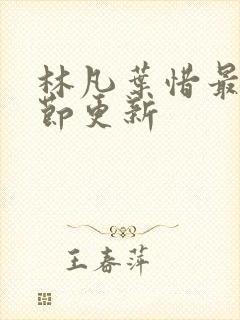 林凡葉惜最
節更新
王春萍